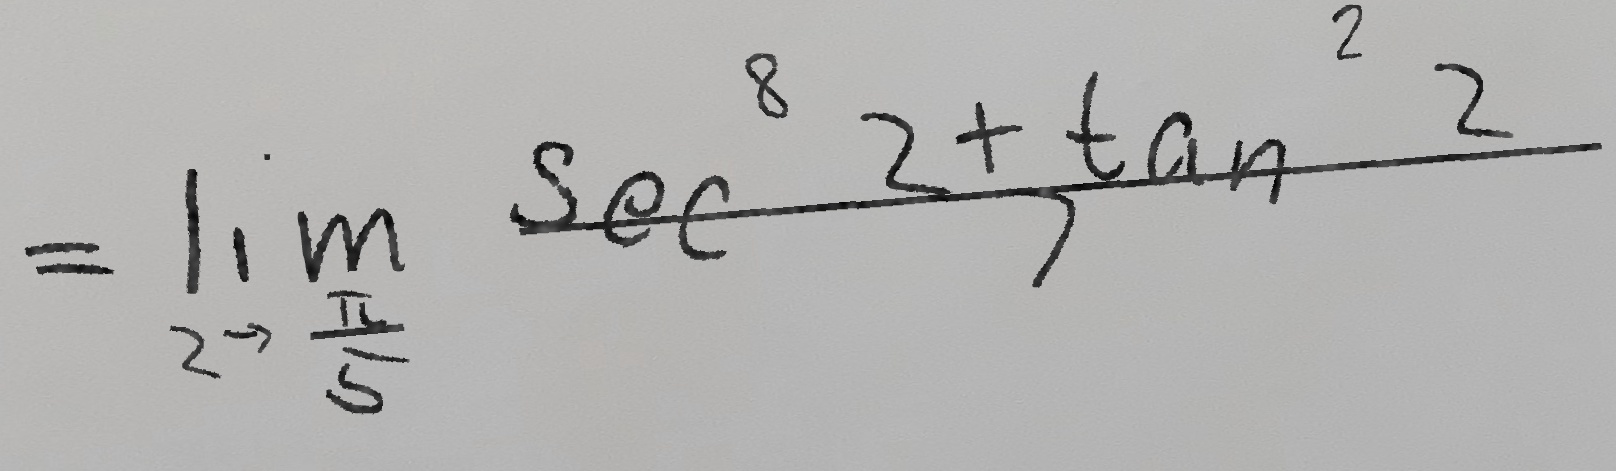 = lim_{z→\frac{π}{5}} \frac{sec^8 z + tan^2 z}{7}